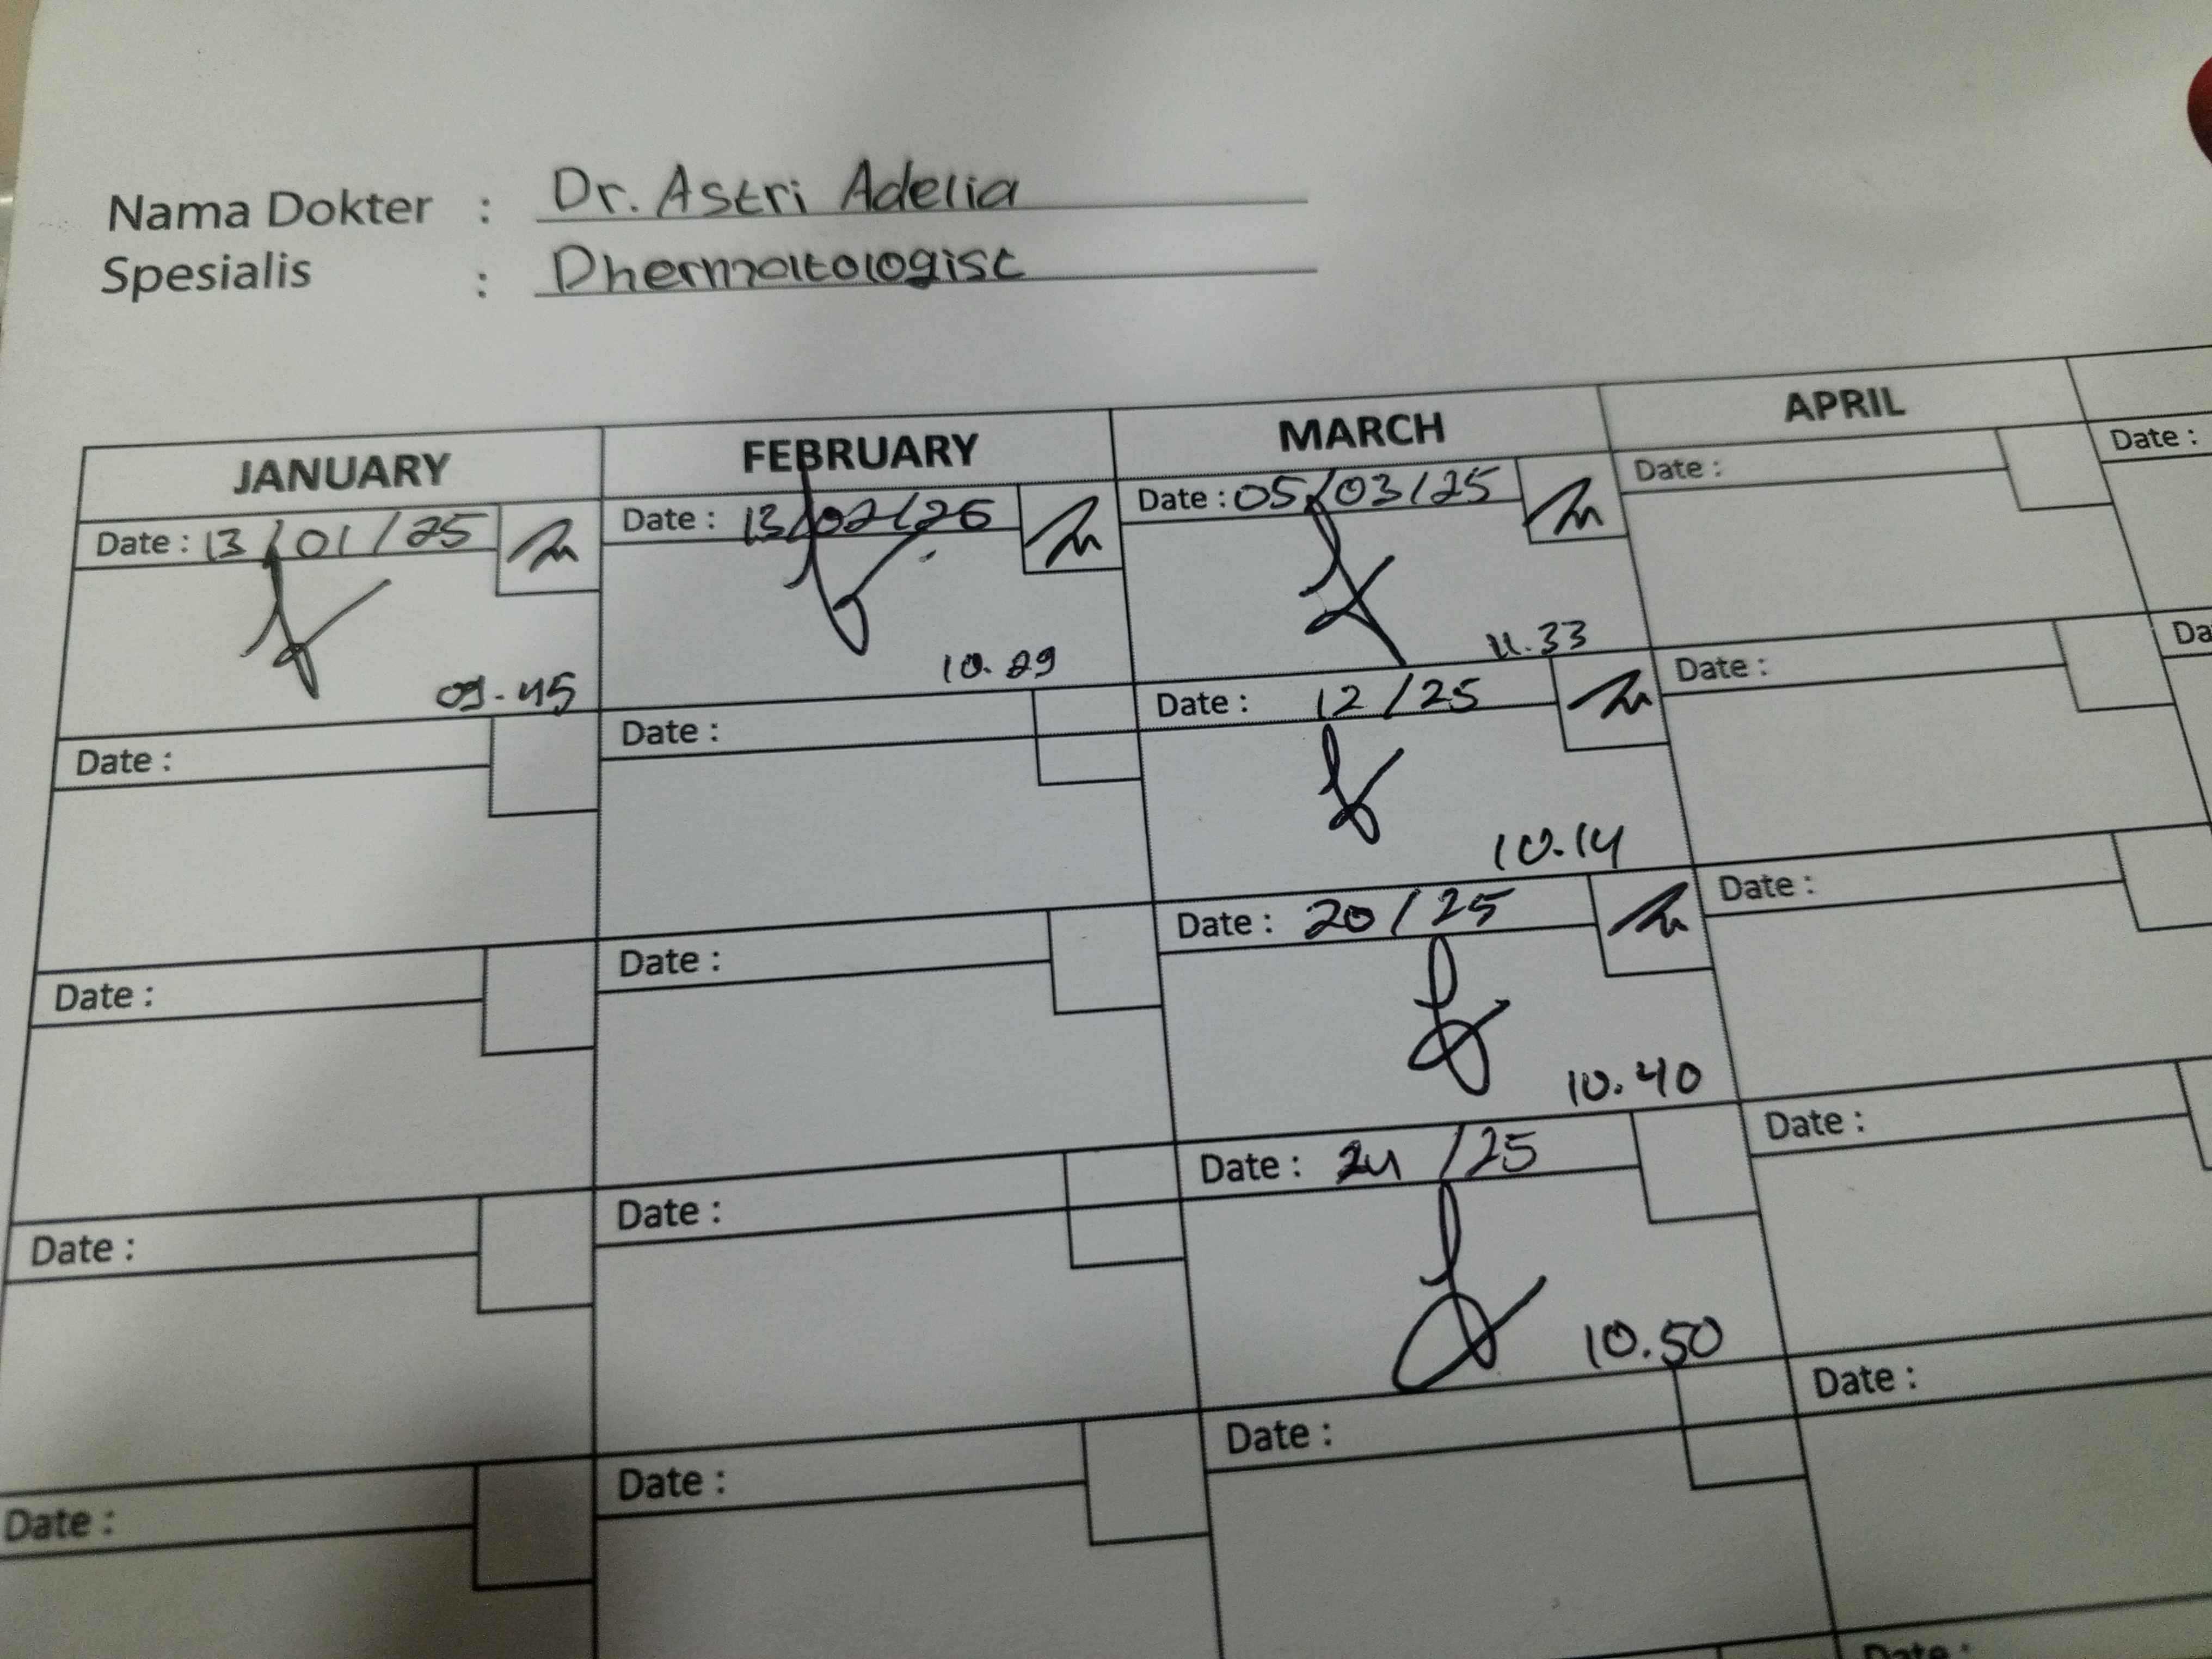 Nama Dokter : Dr. Astri Adelia
Spesialis : Dhermatologist
JANUARY FEBRUARY MARCH APRIL
Date : 13/01/25 Date : 13/02/25 Date : 05/03/25 Date : Date :
09.45 10.29 11.33
Date : Date : Date : 12/25 Date :
10.14
Date : Date : Date : 20/25 Date :
10.40
Date : Date : Date : 24/25 Date :
10.50
Date : Date : Date : Date :
Date :